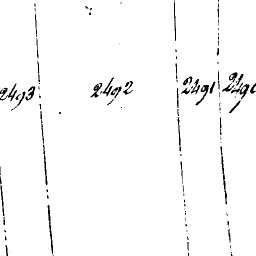 2493 2492 2491 2490